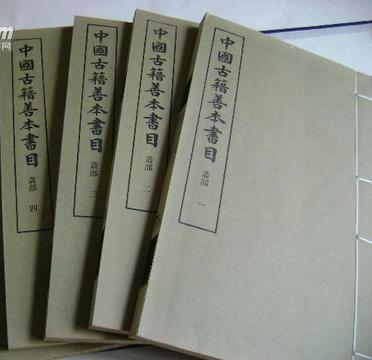 中國古籍善本書目
叢部 一
中國古籍善本書目
叢部 二
中國古籍善本書目
叢部 三
中國古籍善本書目
叢部 四